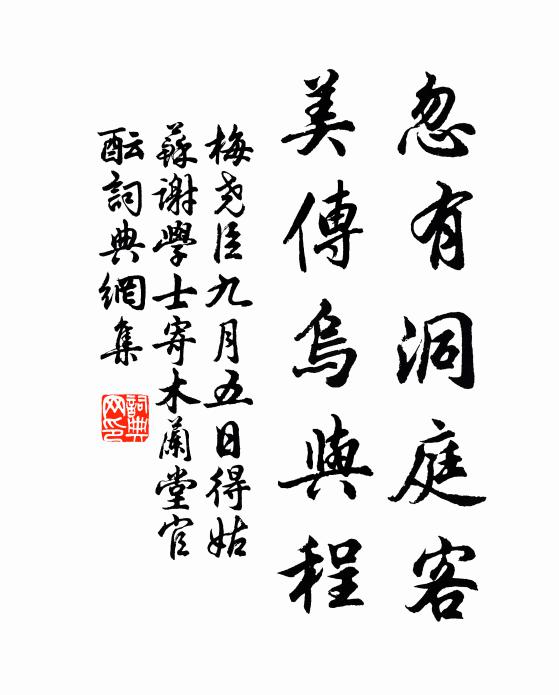 忽有洞庭客
美傳烏與程
梅堯臣九月五日得姑
蘇謝學士寄木蘭堂官
酝詞典網集
詞典网印